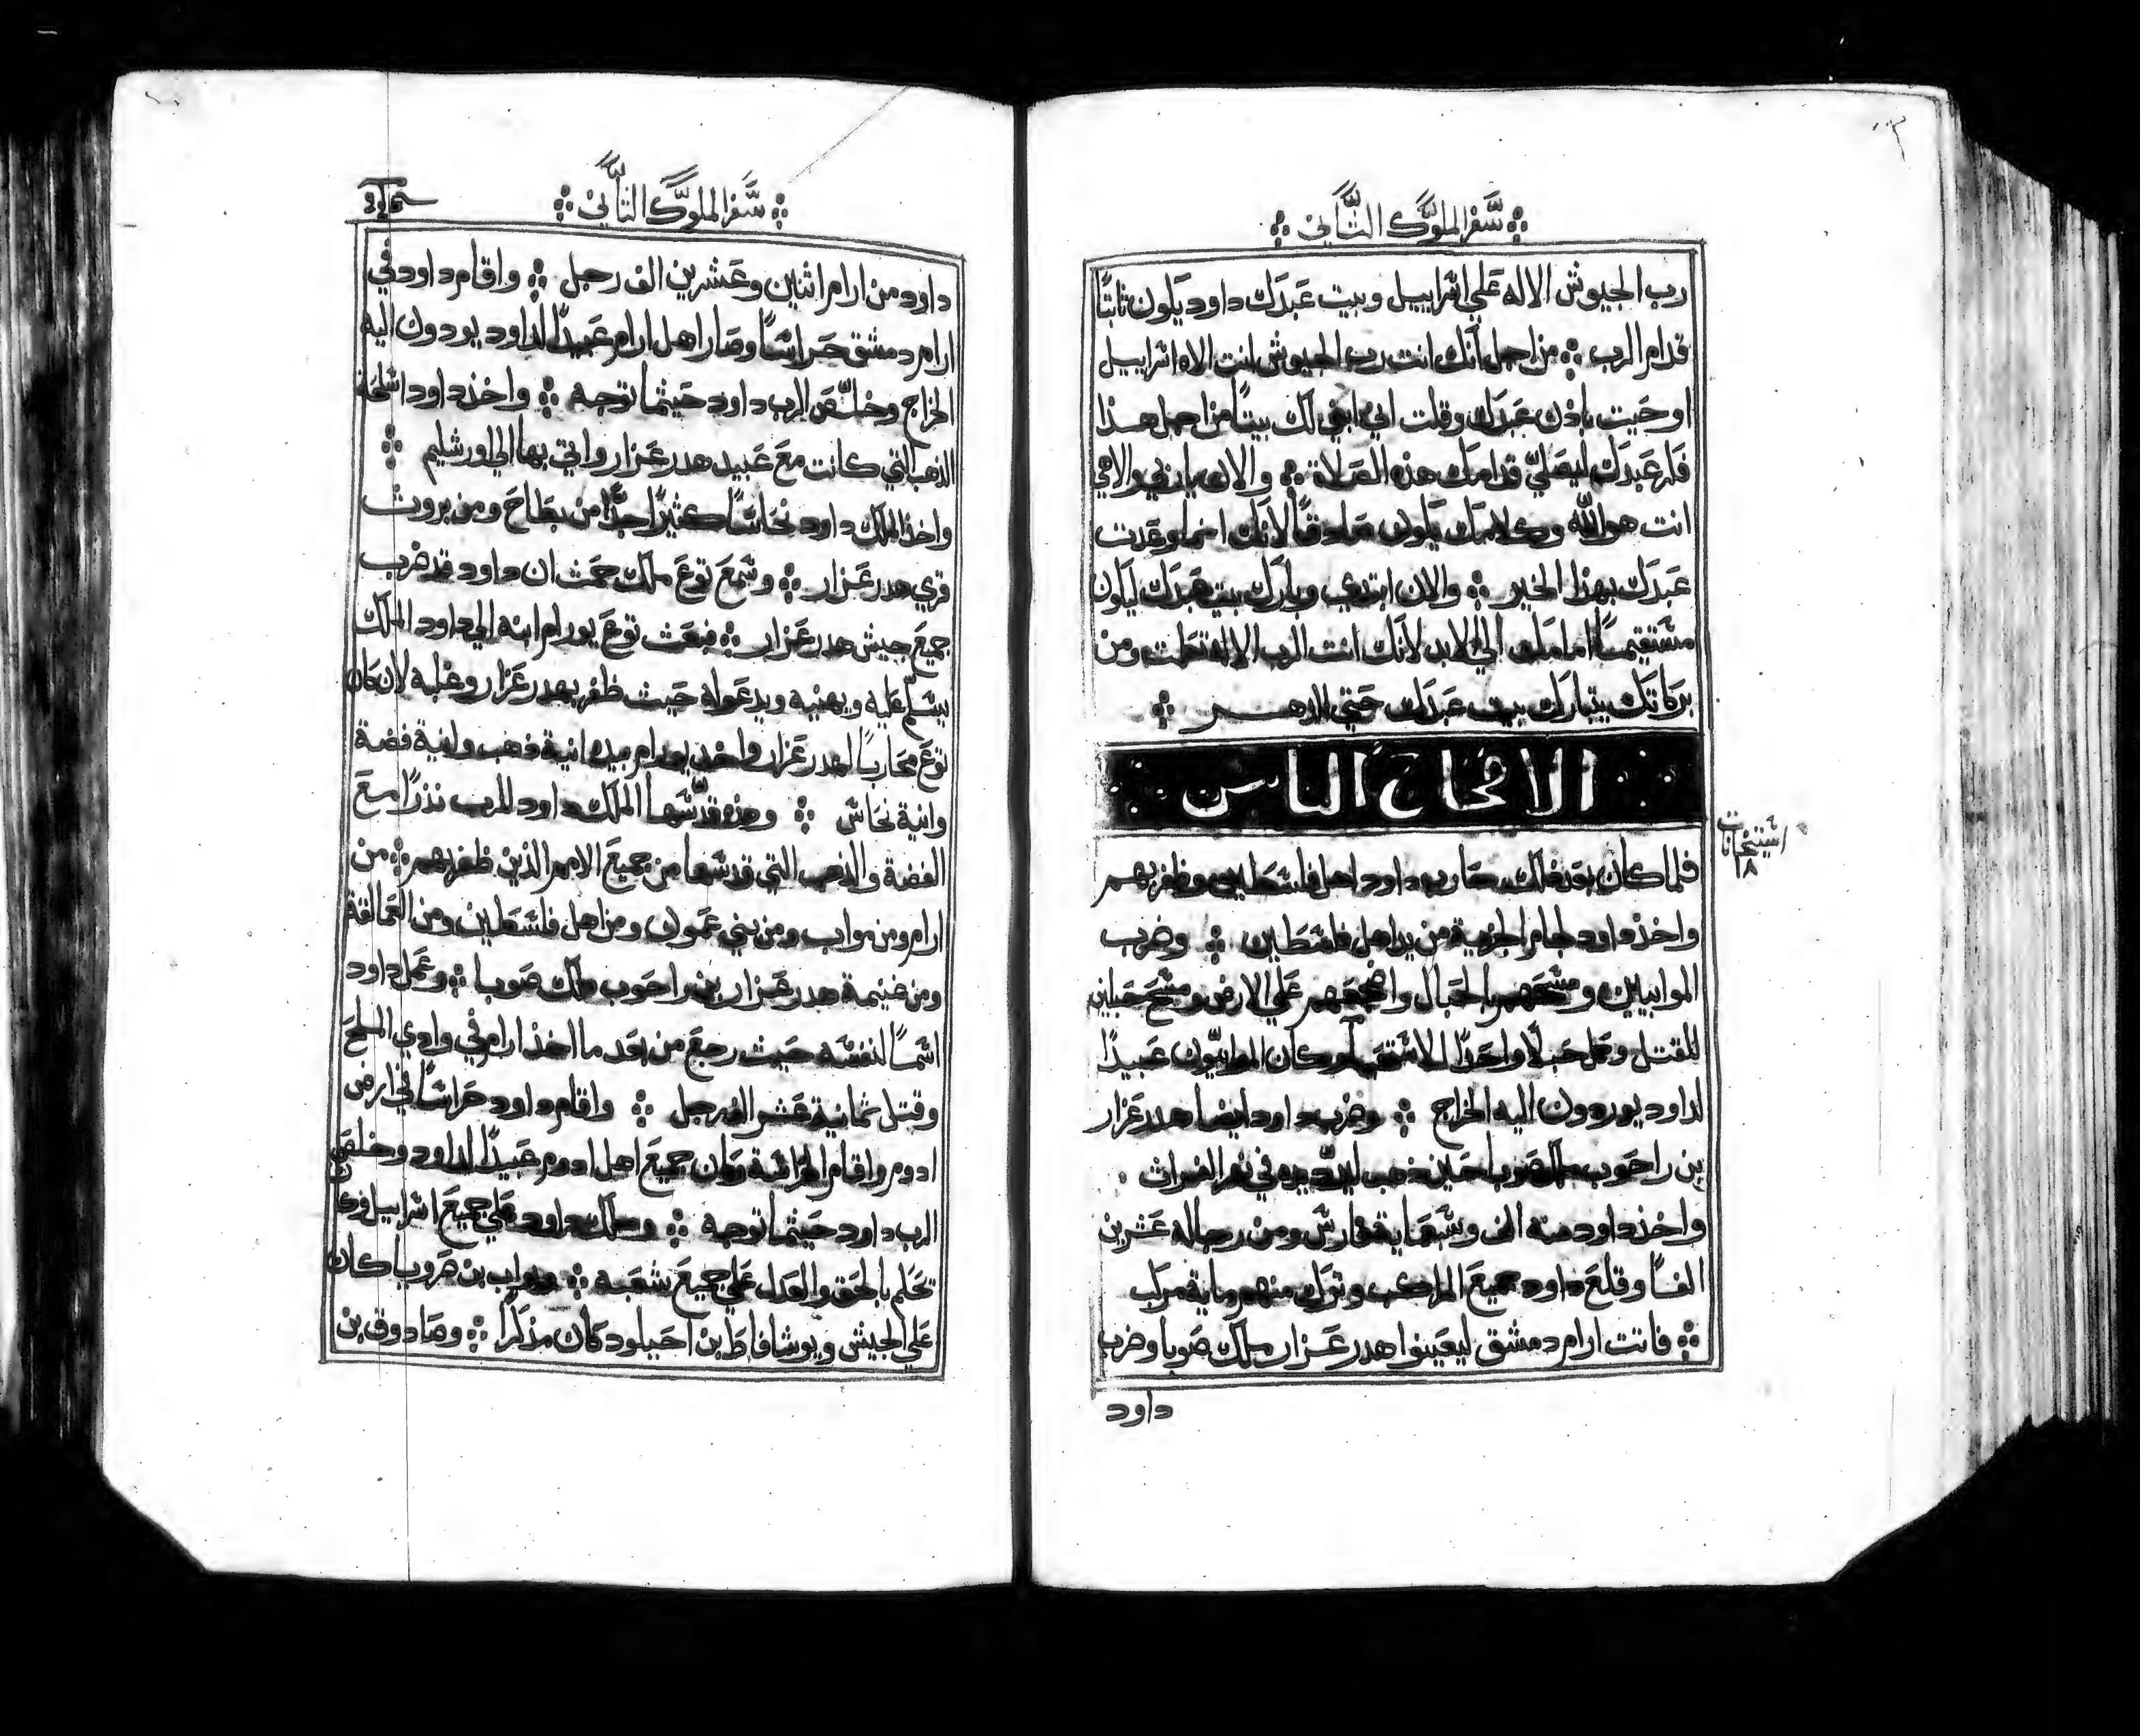 سفر الملوك الثاني
رب الجيوش الاله علي اسراييل وبيت عبدك داود يكون ثابتًا
قدام الرب من اجل أنك انت رب الجيوش انت الاه اسراييل
اوحيت باذن عبدك وقلت اني ابني لك بيتًا من اجل هذا
عبدك ليصلي قدامك هذه الصلاة والان يا ربي والاهي
انت هو الله وكلامك يكون صادقًا لانك وعدت
عبدك بهذا الخير والان ابتدي وبارك بيت عبدك ليكون
مستقيمًا امامك الي الابد لانك انت الرب الاله تكلمت ومن
بركاتك يتبارك بيت عبدك حتي الدهر
الاصحاح الثامن
استيخانات
١٨
فلما كان بعد ذلك حارب داود اهل فلسطين وظفر بهم
واخذ داود لجام الجزية من يد اهل فلسطين وضرب
الموابيين ومسحهم بالحبال واضجعهم علي الارض ومسح حبلين
للقتل وعمل حبلًا واحدًا وكان الموابيّون عبيدًا
لداود يوردون اليه الخراج وضرب داود ايضًا هدرعزار
بن راحوب ملك صوبا حين ذهب في نهر الفراث
واخذ داود منه الف وسبعماية فارس ومن رجاله عشرين
الفًا وقلع داود جميع المراكب وترك منهم ماية مركب
فاتت ارام دمشق ليعينوا هدرعزار ملك صوبا وضرب
داود
سفر الملوك الثاني
داود من ارام اثنين وعشرين الف رجل واقام داود في
ارام دمشق حراسًا وصار اهل ارام عبيدًا لداود يودون اليه
الخراج وخلّص الرب داود حيثما توجه واخذ داود اسلحة
الذهب التي كانت مع عبيد هدرعزار واتي بها الي اورشليم
واخذ الملك داود نحاسًا كثيرًا جدًا من بطاح ومن بروث
قري هدرعزار وسمع توع ملك حمث ان داود قد ضرب
جميع جيش هدرعزار فبعث توع يورام ابنه الي داود الملك
يسلم عليه ويهنيه ويدعوا له حيث ظفر بهدرعزار وغلبه لان كان
توع محاربًا لهدرعزار واخذ يورام بيده انية ذهب وانية فضة
وانية نحاس وهذه قدّسها الملك داود للرب نذرًا مع
الفضة والذهب التي قدسها من جميع الامم الذين ظفر بهم من
ارام ومن مواب ومن بني عمون ومن اهل فلسطين ومن العمالقة
ومن غنيمة هدرعزار بن راحوب ملك صوبا وعمل داود
اسمًا لنفسه حيث رجع من بعد ما اخذ ارام في وادي الملح
وقتل ثمانية عشر الف رجل واقام داود حراسًا في ارض
ادوم واقام الحراسة وكان جميع اهل ادوم عبيدًا لداود وخلص
الرب داود حيثما توجه وملك داود علي جميع اسراييل وكان
تحكم بالحق والعدل علي جميع شعبه ويواب بن صرويا كان
علي الجيش ويوشافاط بن احيلود كان مذكرًا وصادوق بن